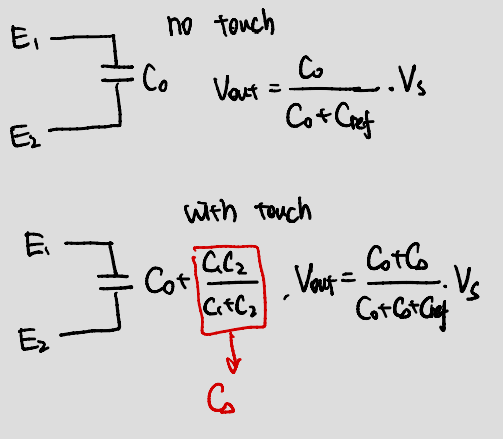 no touch
E₁
C₀
Vout = C₀ / (C₀ + Cref) · Vs
E₂
with touch
E₁
C₀ + C₁C₂ / (C₁ + C₂) , Vout = (C₀ + C△) / (C₀ + C△ + Cref) · Vs
E₂
C△